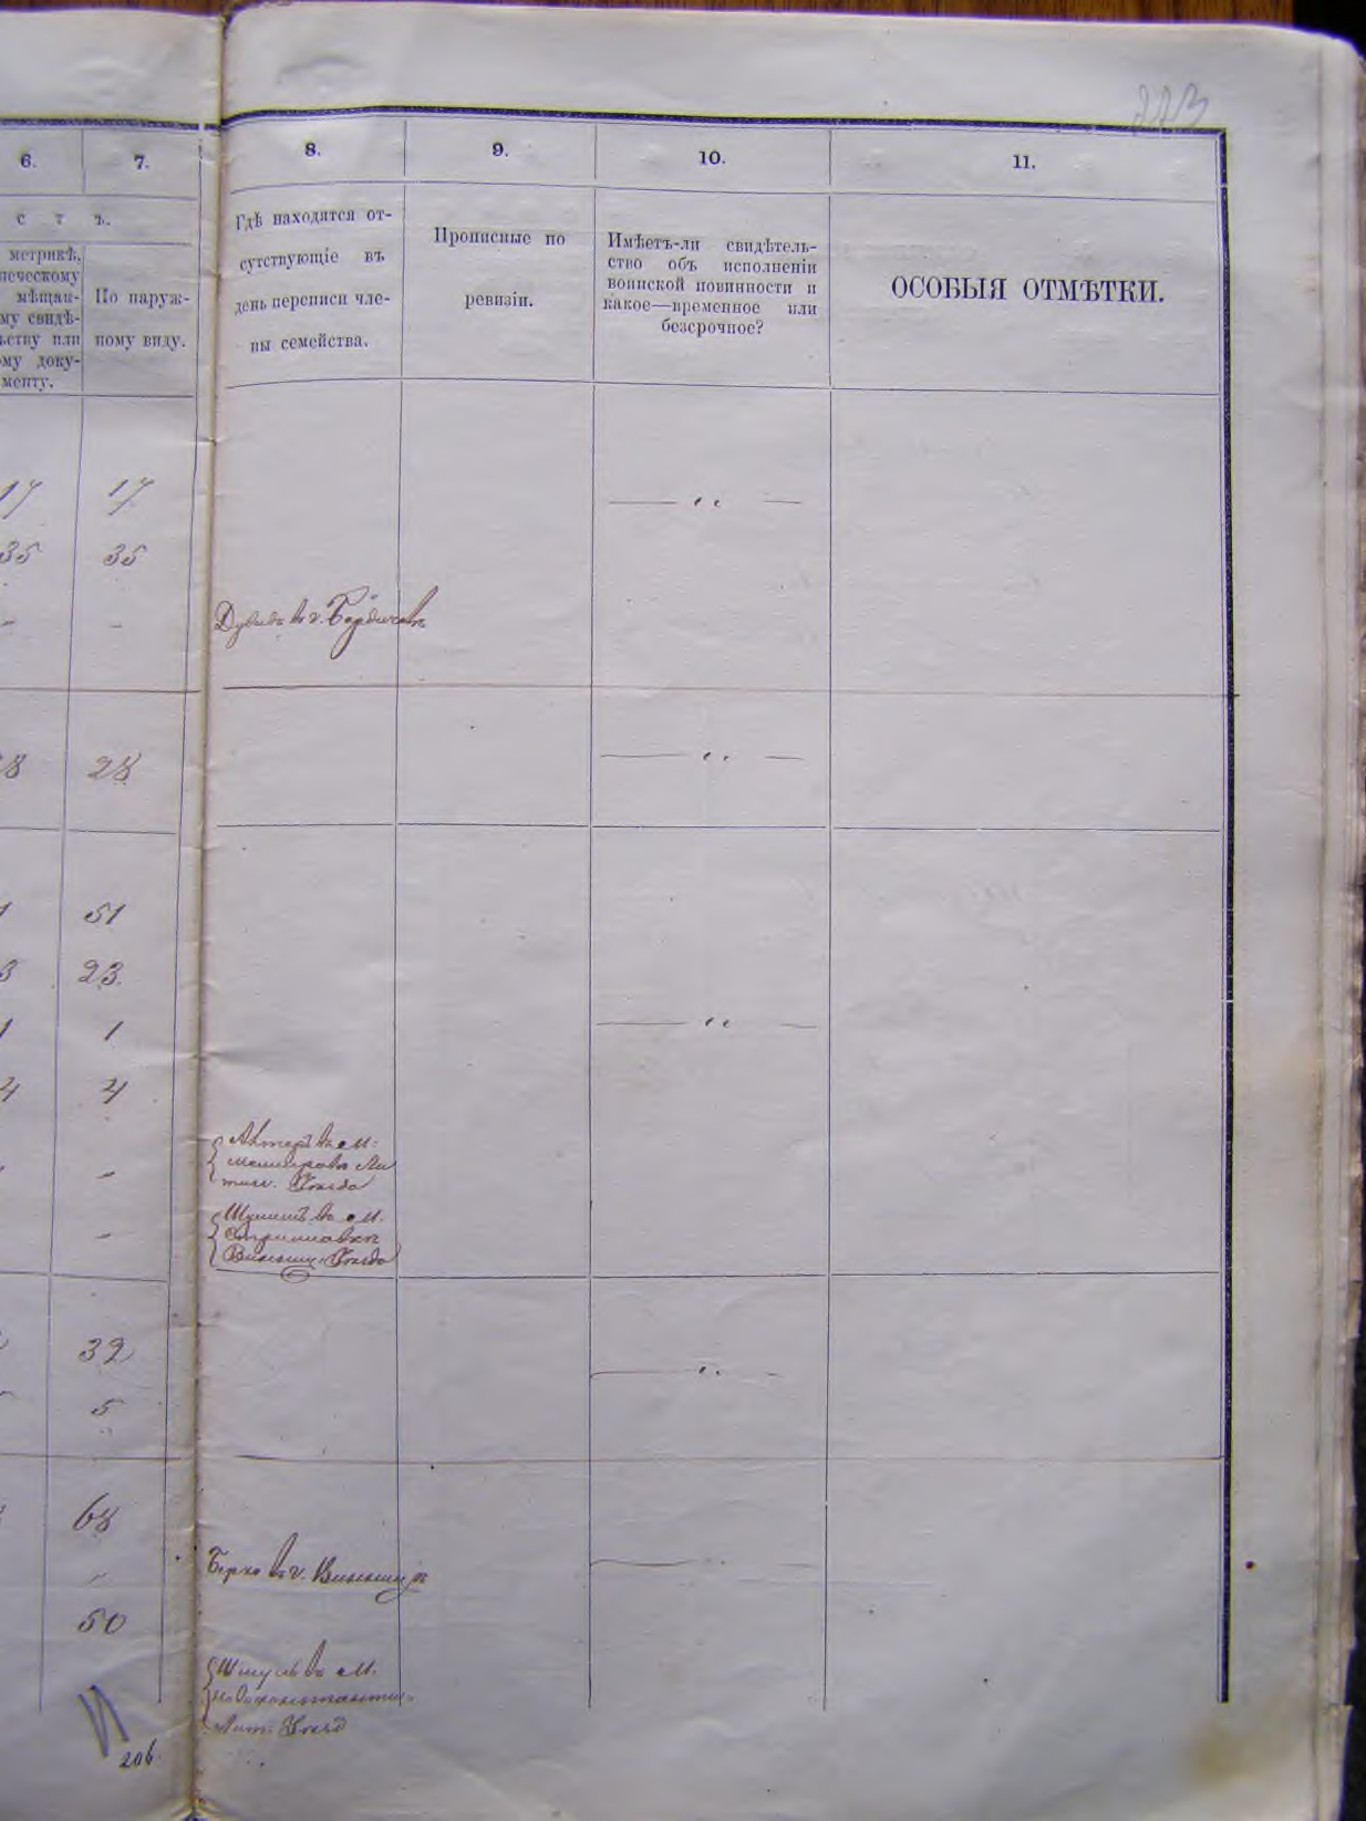 273
6. 7. 8. 9. 10. 11.
с т ъ.
метрикѣ,
мѣщан-
му свидѣ-
ству или
ому доку-
менту.
По наруж-
ному виду.
Гдѣ находятся от-
сутствующіе въ
день переписи чле-
ны семейства.
Прописные по
ревизіи.
Имѣетъ-ли свидѣтель-
ство объ исполненіи
воинской повинности и
какое—временное или
безсрочное?
ОСОБЫЯ ОТМѢТКИ.
17 17
35 35
Дувидъ въ г. Бердичевѣ
8 28
1 51
3 23
1 1
4 4
въ м.
уѣзда
въ м.
Стрижавкѣ
Винниц. уѣзда
32
5
68
Берко въ г. Винницѣ
50
Шмуль въ м.
Лип. уѣзд
206